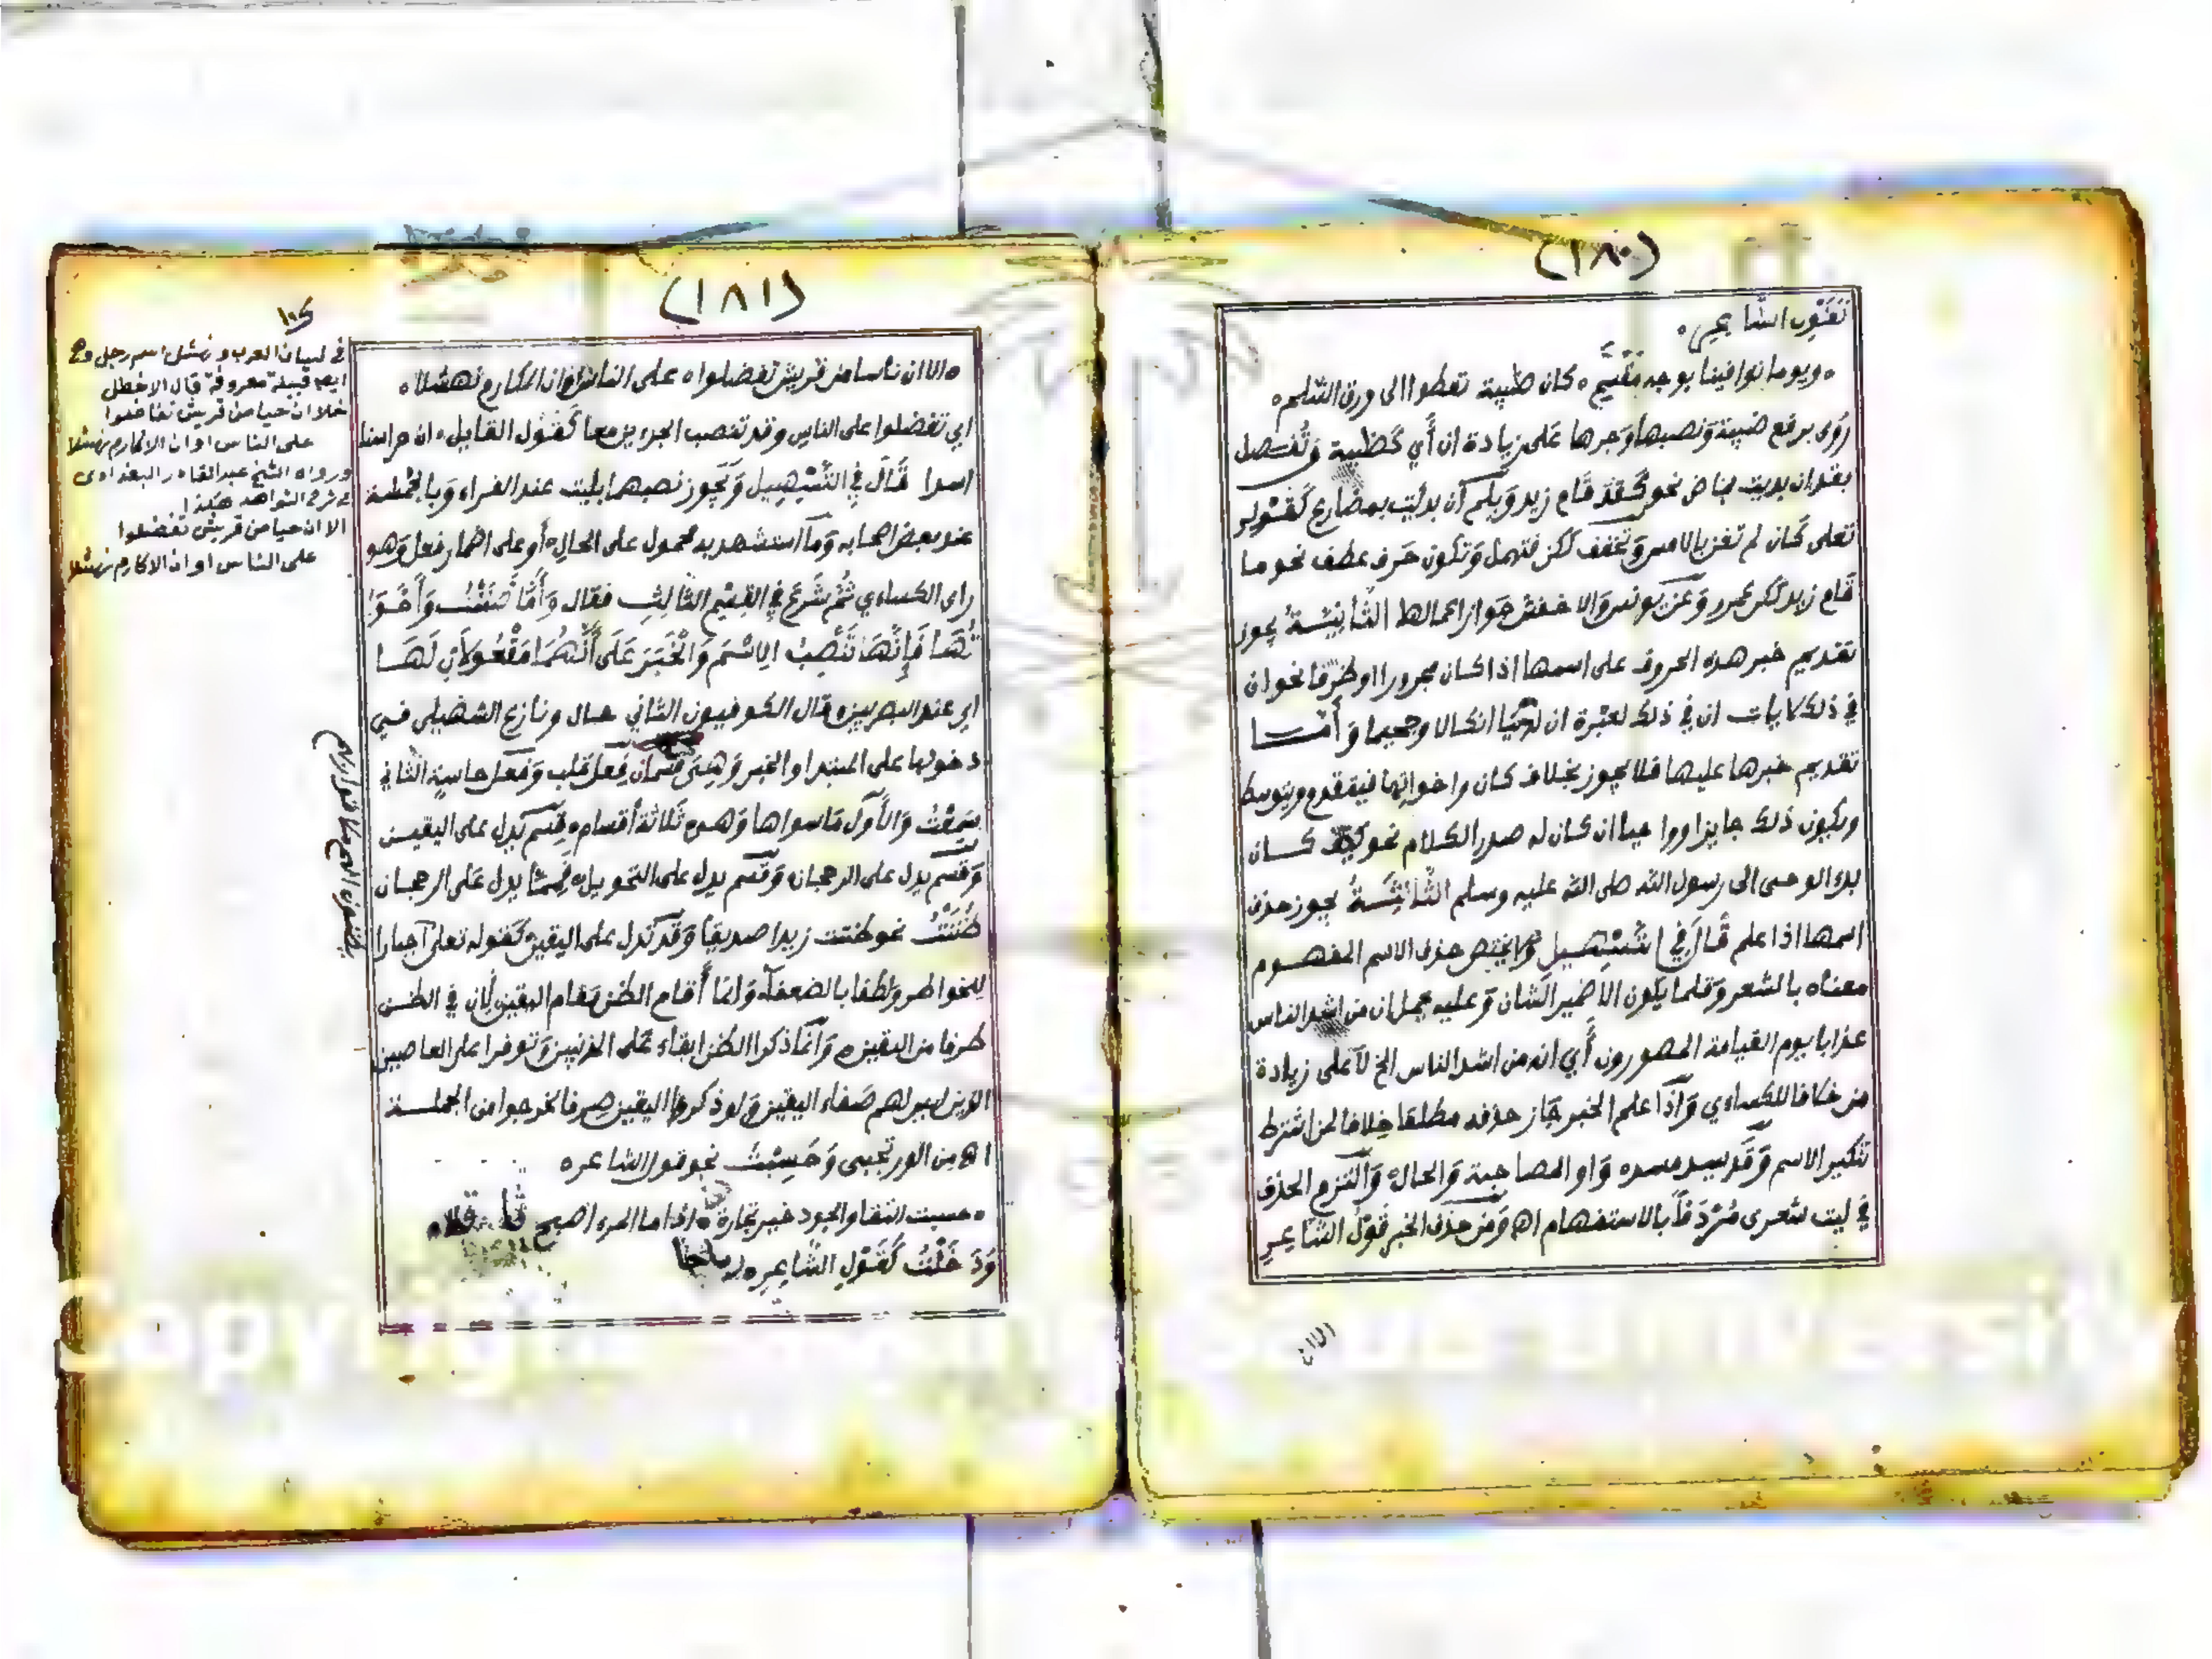 (١٨٠)
كقول الشاعر ه
ه ويوما توافينا بوجه مقسم ه كان ظبية تعطوا الى ورق السلم ه
روى برفع ضبية ونصبها وجرها على زيادة ان أي كظبية وتفصل
بقد ان بديت بماض نحو كقد قام زيد وبلم ان بدئت بمضارع كقوله
تعلى كان لم تغن بالامس وتخفف لكن فتهمل وتكون حرف عطف نحو ما
قام زيد لكن عمرو وعن يونس والاخفش جواز اعمالها الثانيسة يجوز
تقديم خبر هذه الحروف على اسمها اذا كان مجرورا او ظرفا نحو ان
في ذلك لايات ان في ذلك لعبرة ان لدينا انكالا وجحيما وأما
تقديم خبرها عليها فلا يجوز بخلاف كان واخواتها فيتقدم ويتوسط
ويكون ذلك جايزا وواجبا ان كان له صدر الكلام نحو كيف كان
بدء الوحى الى رسول الله صلى الله عليه وسلم الثالثة يجوز حذف
اسمها اذا علم قال في التسهيل ولا يختص حذف الاسم المفهوم
معناه بالشعر وقلما يكون الا ضمير الشان وعليه يحمل ان من اشد الناس
عذابا يوم القيامة المصورون أي انه من اشد الناس الخ لا على زيادة
من خلافا للكساءي واذا علم الخبر جاز حذفه مطلقا خلافا لمن اشترط
تنكير الاسم وقد يسد مسده واو المصاحبة والحال والتزم الحذف
في ليت شعرى مردفا بالاستفهام اه ومن حذف الخبر قول الشاعر
الا ان
(١٨١)
ه الا ان ناسا من قريش تفضلوا ه على الناس او ان المكارم نهشلا ه
اي تفضلوا على الناس وقد تنصب الجزءين معا كقول القايل ه ان حراسنا
اسدا قال في التسهيل ويجوز نصبهما بليت عند الفراء وبالخمسة
عند بعض اصحابه وما استشهد به محمول على الحال أو على اضمار فعل وهو
راى الكساءي ثم شرع في القسم الثالث فقال وأما ظننت وأخوا
تها فإنها تنصب الاسم والخبر على أنهما مفعولان لها
اي عند البصريين ه قال الكوفيون الثاني حال ونازع السهيلى في
دخولها على المبتدا والخبر وهي قسمان فعل قلب وفعل حاسة الثاني
سمعت والأول ما سواها وهو ثلاثة أقسام ه قسم يدل على اليقين
وقسم يدل على الرجحان وقسم يدل على التحويل ه فمما يدل على الرجحان
ظننت نحو ظننت زيدا صديقا وقد تدل على اليقين كقوله تعلى اجبارا
للخواطر ولطفا بالضعفاء وانما أقام الظن مقام اليقين لأن في الظن
طرفا من اليقين ه وانما ذكر الظن ابقاء على المذنبين وتوفرا على العاصين
الذين ليس لهم صفاء اليقين ولو ذكر اليقين صرفا لخرجوا من الجملة
اه من الور تجبى وحسبت نحو قول الشاعر ه
ه حسبت التقا والجود خير تجارة ه اذا ما المرء اصبح ثاقلا ه
وخلت كقول الشاعر ه
في لسان العرب و نهشل اسم رجل وهي
ايضا قبيلة معروفة قال الاخطل
خلا ان حيا من قريش تفاضلوا
على الناس او ان الاكارم نهشلا
ورواه الشيخ عبد القادر البغدادى
في شرح الشواهد هكذا
الا ان حيا من قريش تفضلوا
على الناس او ان الاكارم نهشلا